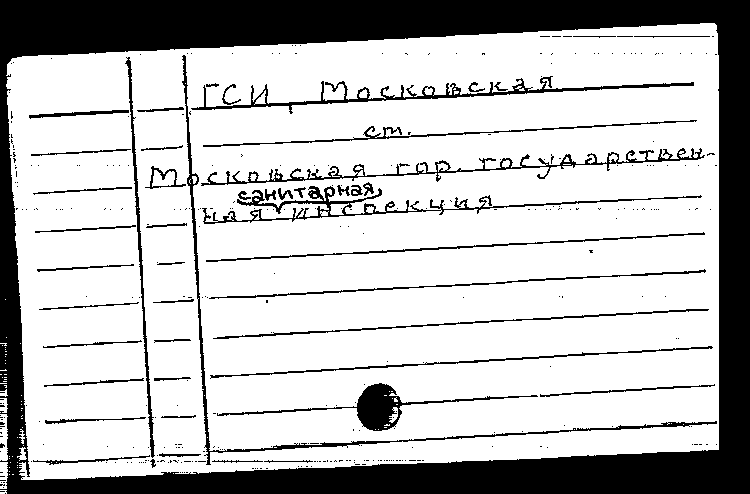 ГСИ, Московская
ст.
Московская гор. государствен-
санитарная
ная инспекция